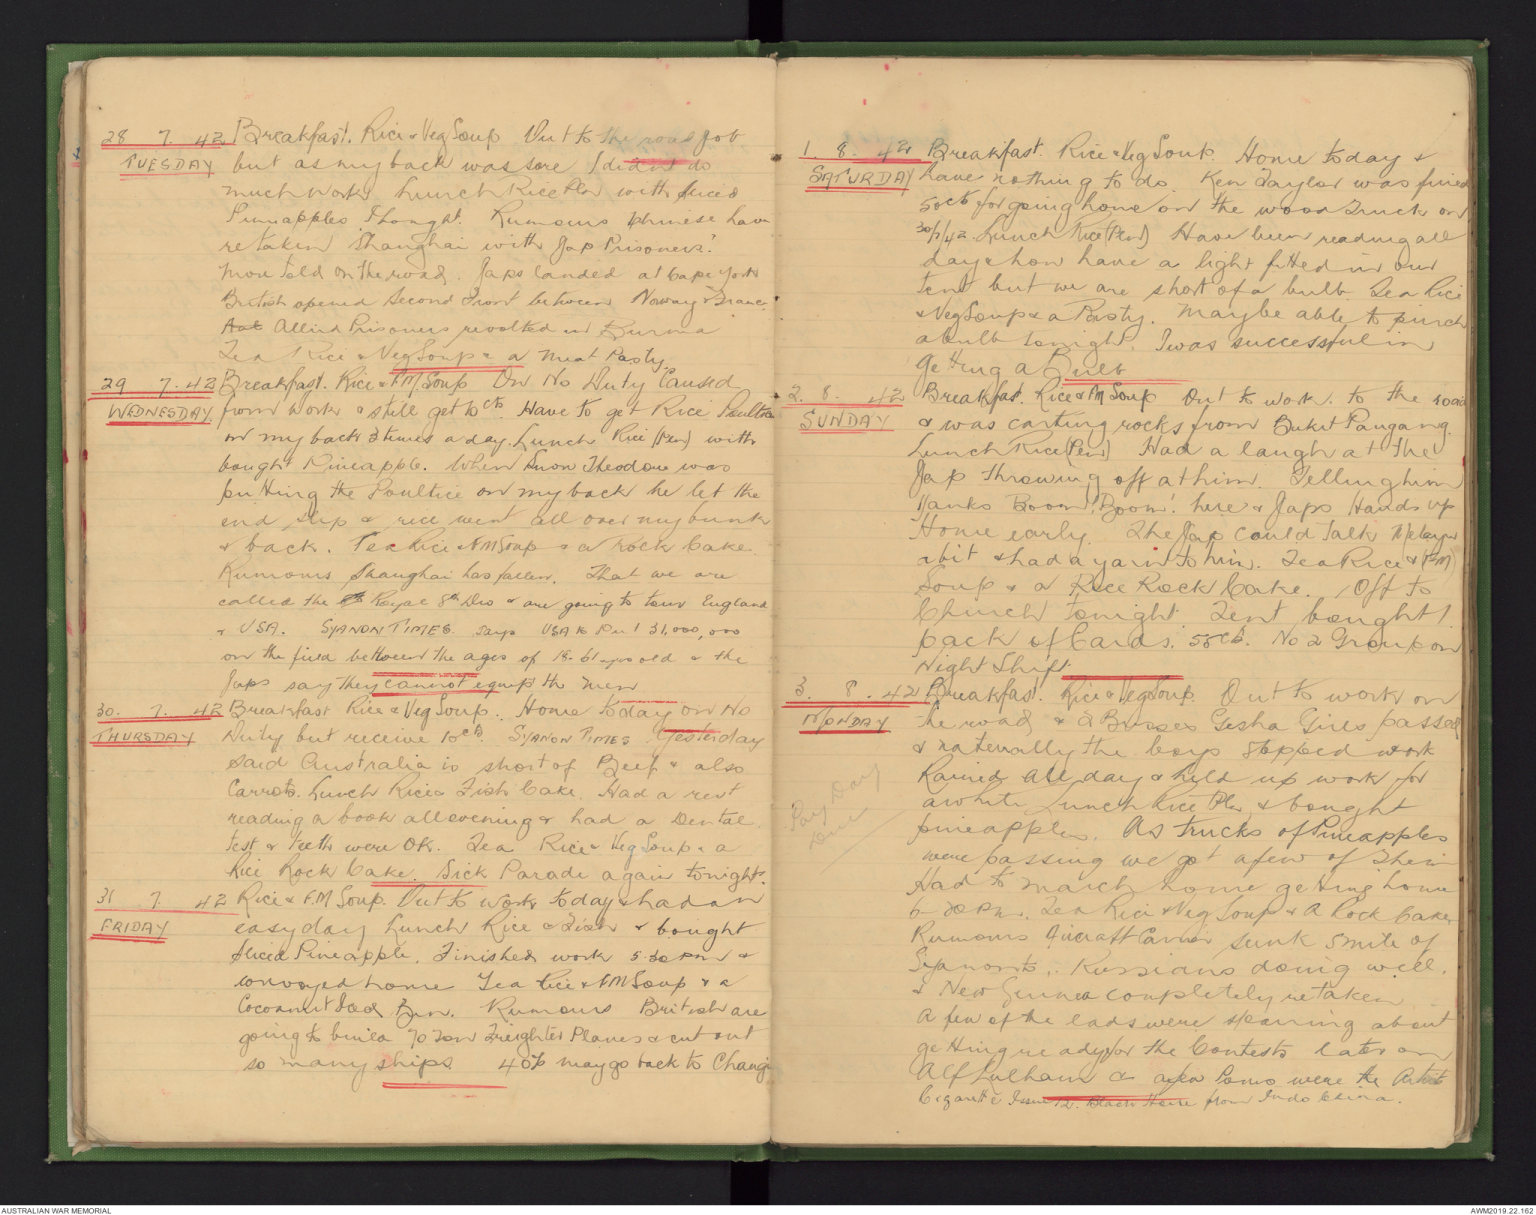 28 7. 42 Breakfast. Rice & Veg Soup Out to the road job
TUESDAY but as my back was sore I didn't do
much work Lunch Rice Pln with sliced
Pineapples I bought. Rumours Chinese have
retaken Shanghai with Jap Prisoners?
told on the road. Japs landed at Cape York
British opened Second Front between Norway & France
Allied Prisoners revolted in Burma
Tea Rice & Veg Soup & a Meat Pasty.
29 7. 42 Breakfast. Rice & F.M. Soup On No Duty Caused
WEDNESDAY from work & still get 10cts. Have to get Rice Poultice
on my back 3 times a day. Lunch Rice (Pln) with
bought Pineapple. When Snow Theodore was
putting the Poultice on my back he let the
end slip & rice went all over my bunk
& back. Tea Rice & FM Soup & a rock Cake.
Rumours Shanghai has fallen. That we are
called the Royal 8th Div & are going to tour England
& USA. SYANON TIMES says USA to Put 31,000,000
on the field between the ages of 18-61 yrs old & the
Japs say they cannot equip the men
30. 7. 42 Breakfast Rice & Veg Soup. Home today on No
THURSDAY Duty but receive 10cts. SYANON TIMES Yesterday
said Australia is short of Beef & also
Carrots. Lunch Rice & Fish Cake. Had a rest
reading a book all evening & had a Dental
test & teeth were OK. Tea Rice & Veg Soup & a
Rice Rock Cake. Sick Parade again tonight.
31 7. 42 Rice & F.M Soup. Out to work today & had an
FRIDAY easy day Lunch Rice & Fish & bought
sliced Pineapple. Finished work 5.30 PM &
convoyed home Tea Rice & FM Soup & a
Cocoanut Bun. Rumours British are
going to build 70 Ton Freighter Planes & cut out
so many ships 40% may go back to Changi
1. 8. 42 Breakfast. Rice & Veg Soup. Home today &
SATURDAY have nothing to do. Ken Taylor was fined
50cts for going home on the wood Truck on
30/7/42. Lunch Rice (Pln) Have been reading all
day & now have a light fitted in our
Tent but we are short of a bulb. Tea Rice
& Veg Soup & a Pasty. Maybe able to pinch
a bulb tonight. I was successful in
getting a Bulb
2. 8. 42 Breakfast. Rice & FM Soup Out to work. to the road
SUNDAY & was carting rocks from Bukit Pangang.
Lunch Rice (Pln) Had a laugh at the
Jap throwing off at him. Telling him
Yanks Boom Boom! here & Japs Hands up
Home early. The Jap could talk Malayan
a bit & had a yarn to him. Tea Rice & (FM)
Soup & a Rice Rock Cake. Off to
Church tonight. Tent bought 1
pack of Cards. 50cts. No 2 Group on
Night Shift.
3. 8. 42 Breakfast. Rice & Veg Soup. Out to work on
MONDAY the road & 2 Busses Gesha Girls passed
& naterually the boys stopped work
Rained all day & held up work for
Pay Day
Due
awhile Lunch Rice Pln & bought
pineapples. As trucks of Pineapples
were passing we got a few of Them
Had to march home getting home
6-20 PM. Tea Rice & Veg Soup & A Rock Cake
Rumours Aircraft Carrier sunk 5 mile of
Syanon. Russians doing well.
& New Guinea completely retaken
A few of the lads were sparring about
getting ready for the Contests later on
Alf Pulham & were the Artists
Cigarette Issue 12. Black Horse from Indo China.
AUSTRALIAN WAR MEMORIAL
AWM2019.22.162